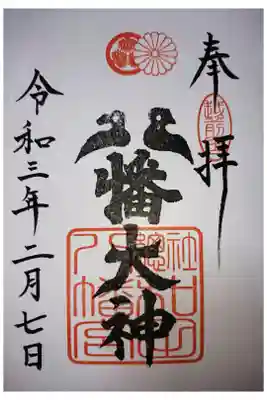 奉拝
越前
八幡大神
令和三年二月七日